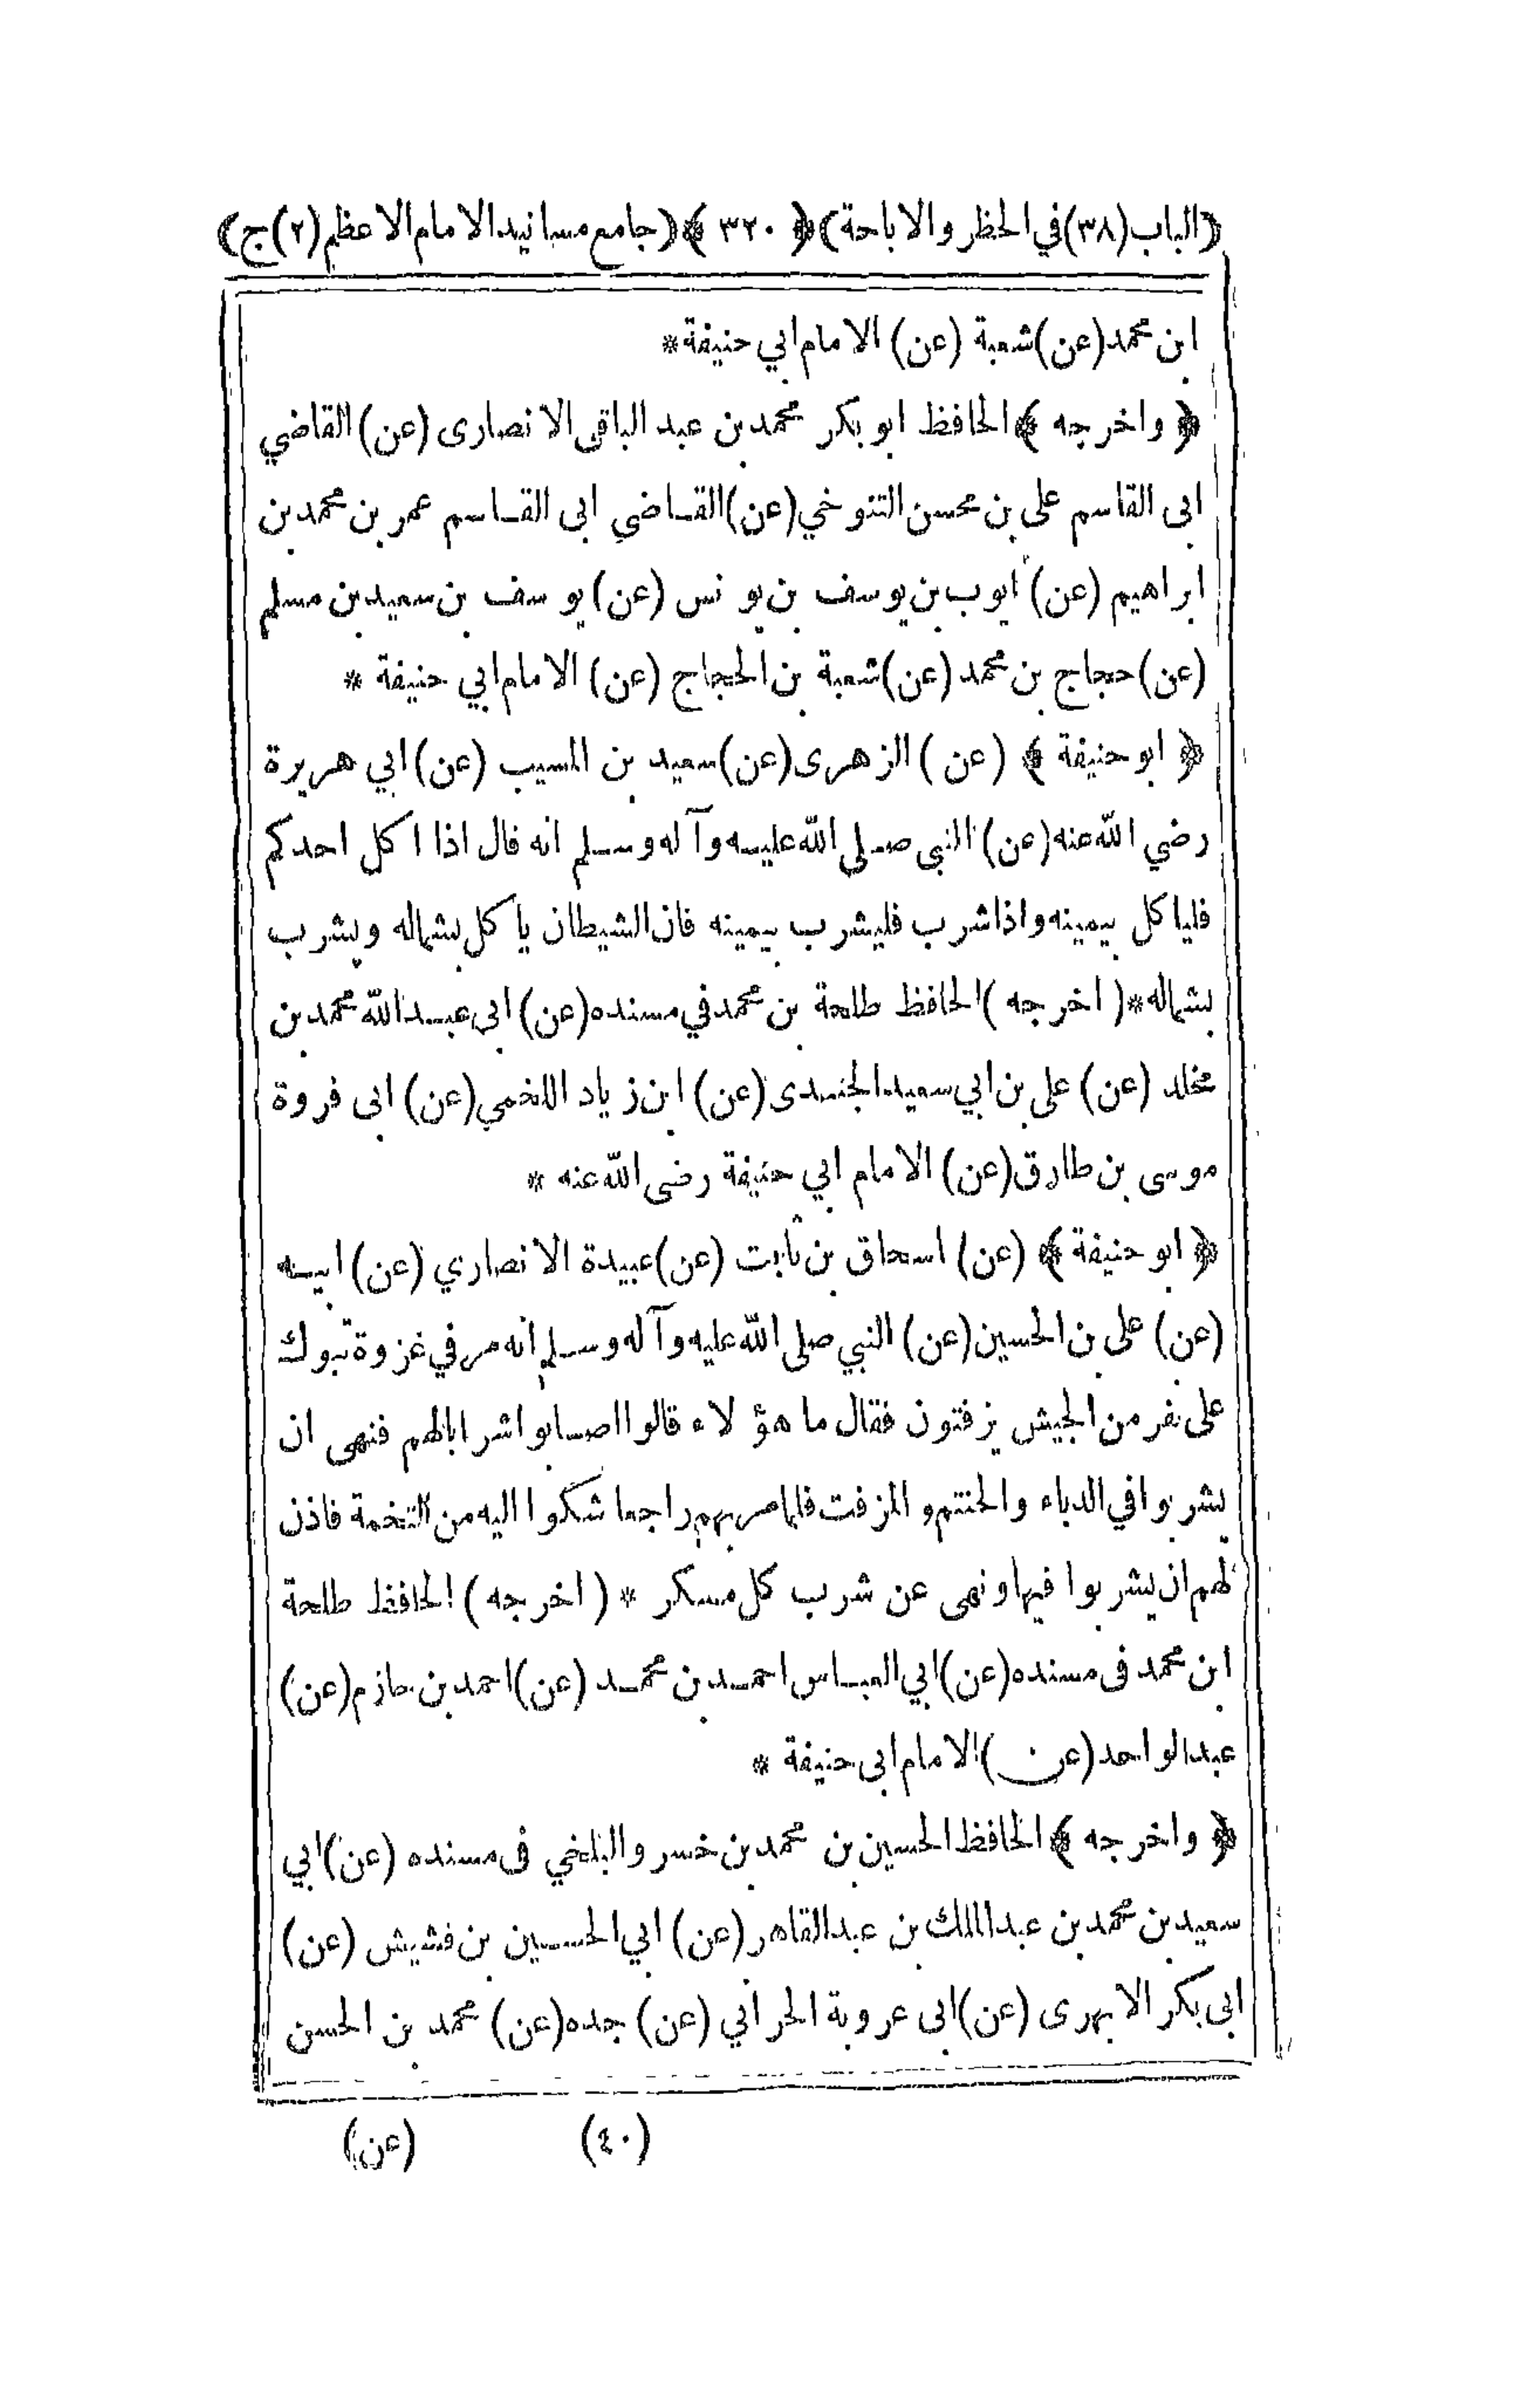 ﴿الباب (٣٨) في الحظر والاباحة﴾ ﴿ ٣٢٠ ﴾ ﴿جامع مسانيد الامام الاعظم (٢) ج﴾
ابن محمد (عن) شعبة (عن) الامام ابي حنيفة *
﴿ واخرجه ﴾ الحافظ ابو بكر محمد بن عبد الباقى الانصارى (عن) القاضي
ابى القاسم على بن محسن التنوخي (عن) القاضي ابى القاسم عمر بن محمد بن
ابراهيم (عن) ايوب بن يوسف بن يونس (عن) يوسف بن سعيد بن مسلم
(عن) حجاج بن محمد (عن) شعبة بن الحجاج (عن) الامام ابي حنيفة *
﴿ ابو حنيفة ﴾ (عن) الزهرى (عن) سعيد بن المسيب (عن) ابي هريرة
رضي الله عنه (عن) النبى صلى الله عليه وآله وسلم انه قال اذا اكل احدكم
فلياكل بيمينه واذا شرب فليشرب بيمينه فان الشيطان ياكل بشماله ويشرب
بشماله * (اخرجه) الحافظ طلحة بن محمد في مسنده (عن) ابى عبد الله محمد بن
مخلد (عن) على بن ابي سعيد الجندى (عن) ابن زياد اللخمي (عن) ابى فروة
موسى بن طارق (عن) الامام ابي حنيفة رضى الله عنه *
﴿ ابو حنيفة ﴾ (عن) اسحاق بن ثابت (عن) عبيدة الانصاري (عن) ابيه
(عن) على بن الحسين (عن) النبي صلى الله عليه وآله وسلم انه مر في غزوة تبوك
على نفر من الجيش يزفتون فقال ما هؤلاء قالوا اصابوا شرابا لهم فنهى ان
يشربوا في الدباء والحنتم والمزفت فلما مر بهم راجعا شكوا اليه من التخمة فاذن
لهم ان يشربوا فيها ونهى عن شرب كل مسكر * (اخرجه) الحافظ طلحة
ابن محمد فى مسنده (عن) ابي العباس احمد بن محمد (عن) احمد بن حازم (عن)
عبد الواحد (عن) الامام ابى حنيفة *
﴿ واخرجه ﴾ الحافظ الحسين بن محمد بن خسرو البلخي فى مسنده (عن) ابي
سعيد بن محمد بن عبد الملك بن عبد القاهر (عن) ابي الحسين بن قشيش (عن)
ابى بكر الابهرى (عن) ابى عروبة الحراني (عن) جده (عن) محمد بن الحسن
(٤٠) (عن)